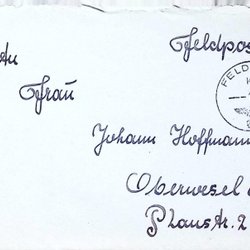 Feldpos
An
Frau
FELD
Johann Hoffmann
Oberwesel a
Plaustr. 2